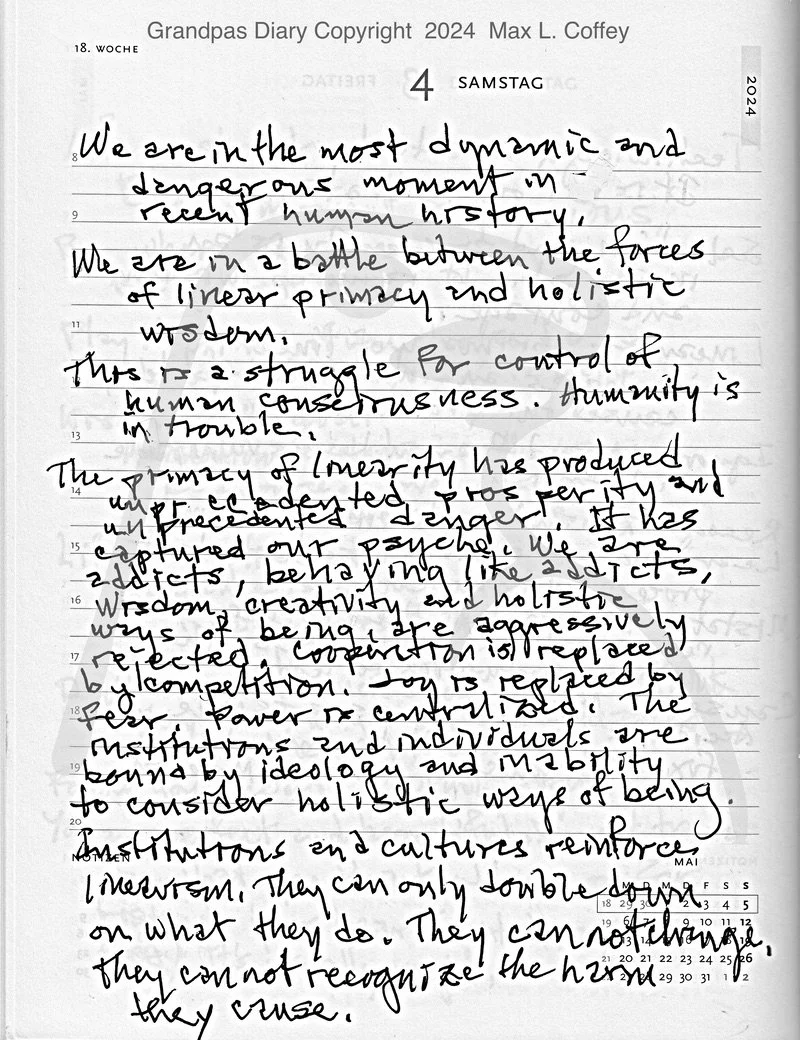 Grandpas Diary Copyright 2024 Max L. Coffey
18. WOCHE
4 SAMSTAG
2024
8 We are in the most dynamic and
dangerous moment in
9 recent human history.
We are in a battle between the forces
of linear primacy and holistic
11 wisdom.
This is a struggle for control of
human consciousness. Humanity is
13 in trouble.
The primacy of linearity has produced
14 unprecedented prosperity and
unprecedented danger. It has
15 captured our psyche. We are
addicts, behaving like addicts,
16 wisdom, creativity and holistic
ways of being, are aggressively
17 rejected. Cooperation is replaced
by competition. Joy is replaced by
18 fear. Power is centralized. The
institutions and individuals are
19 bound by ideology and inability
to consider holistic ways of being.
20
Institutions and cultures reinforce
NOTIZEN
MAI
linearism. They can only double down
on what they do. They cannot change,
they cannot recognize the harm
they cause.